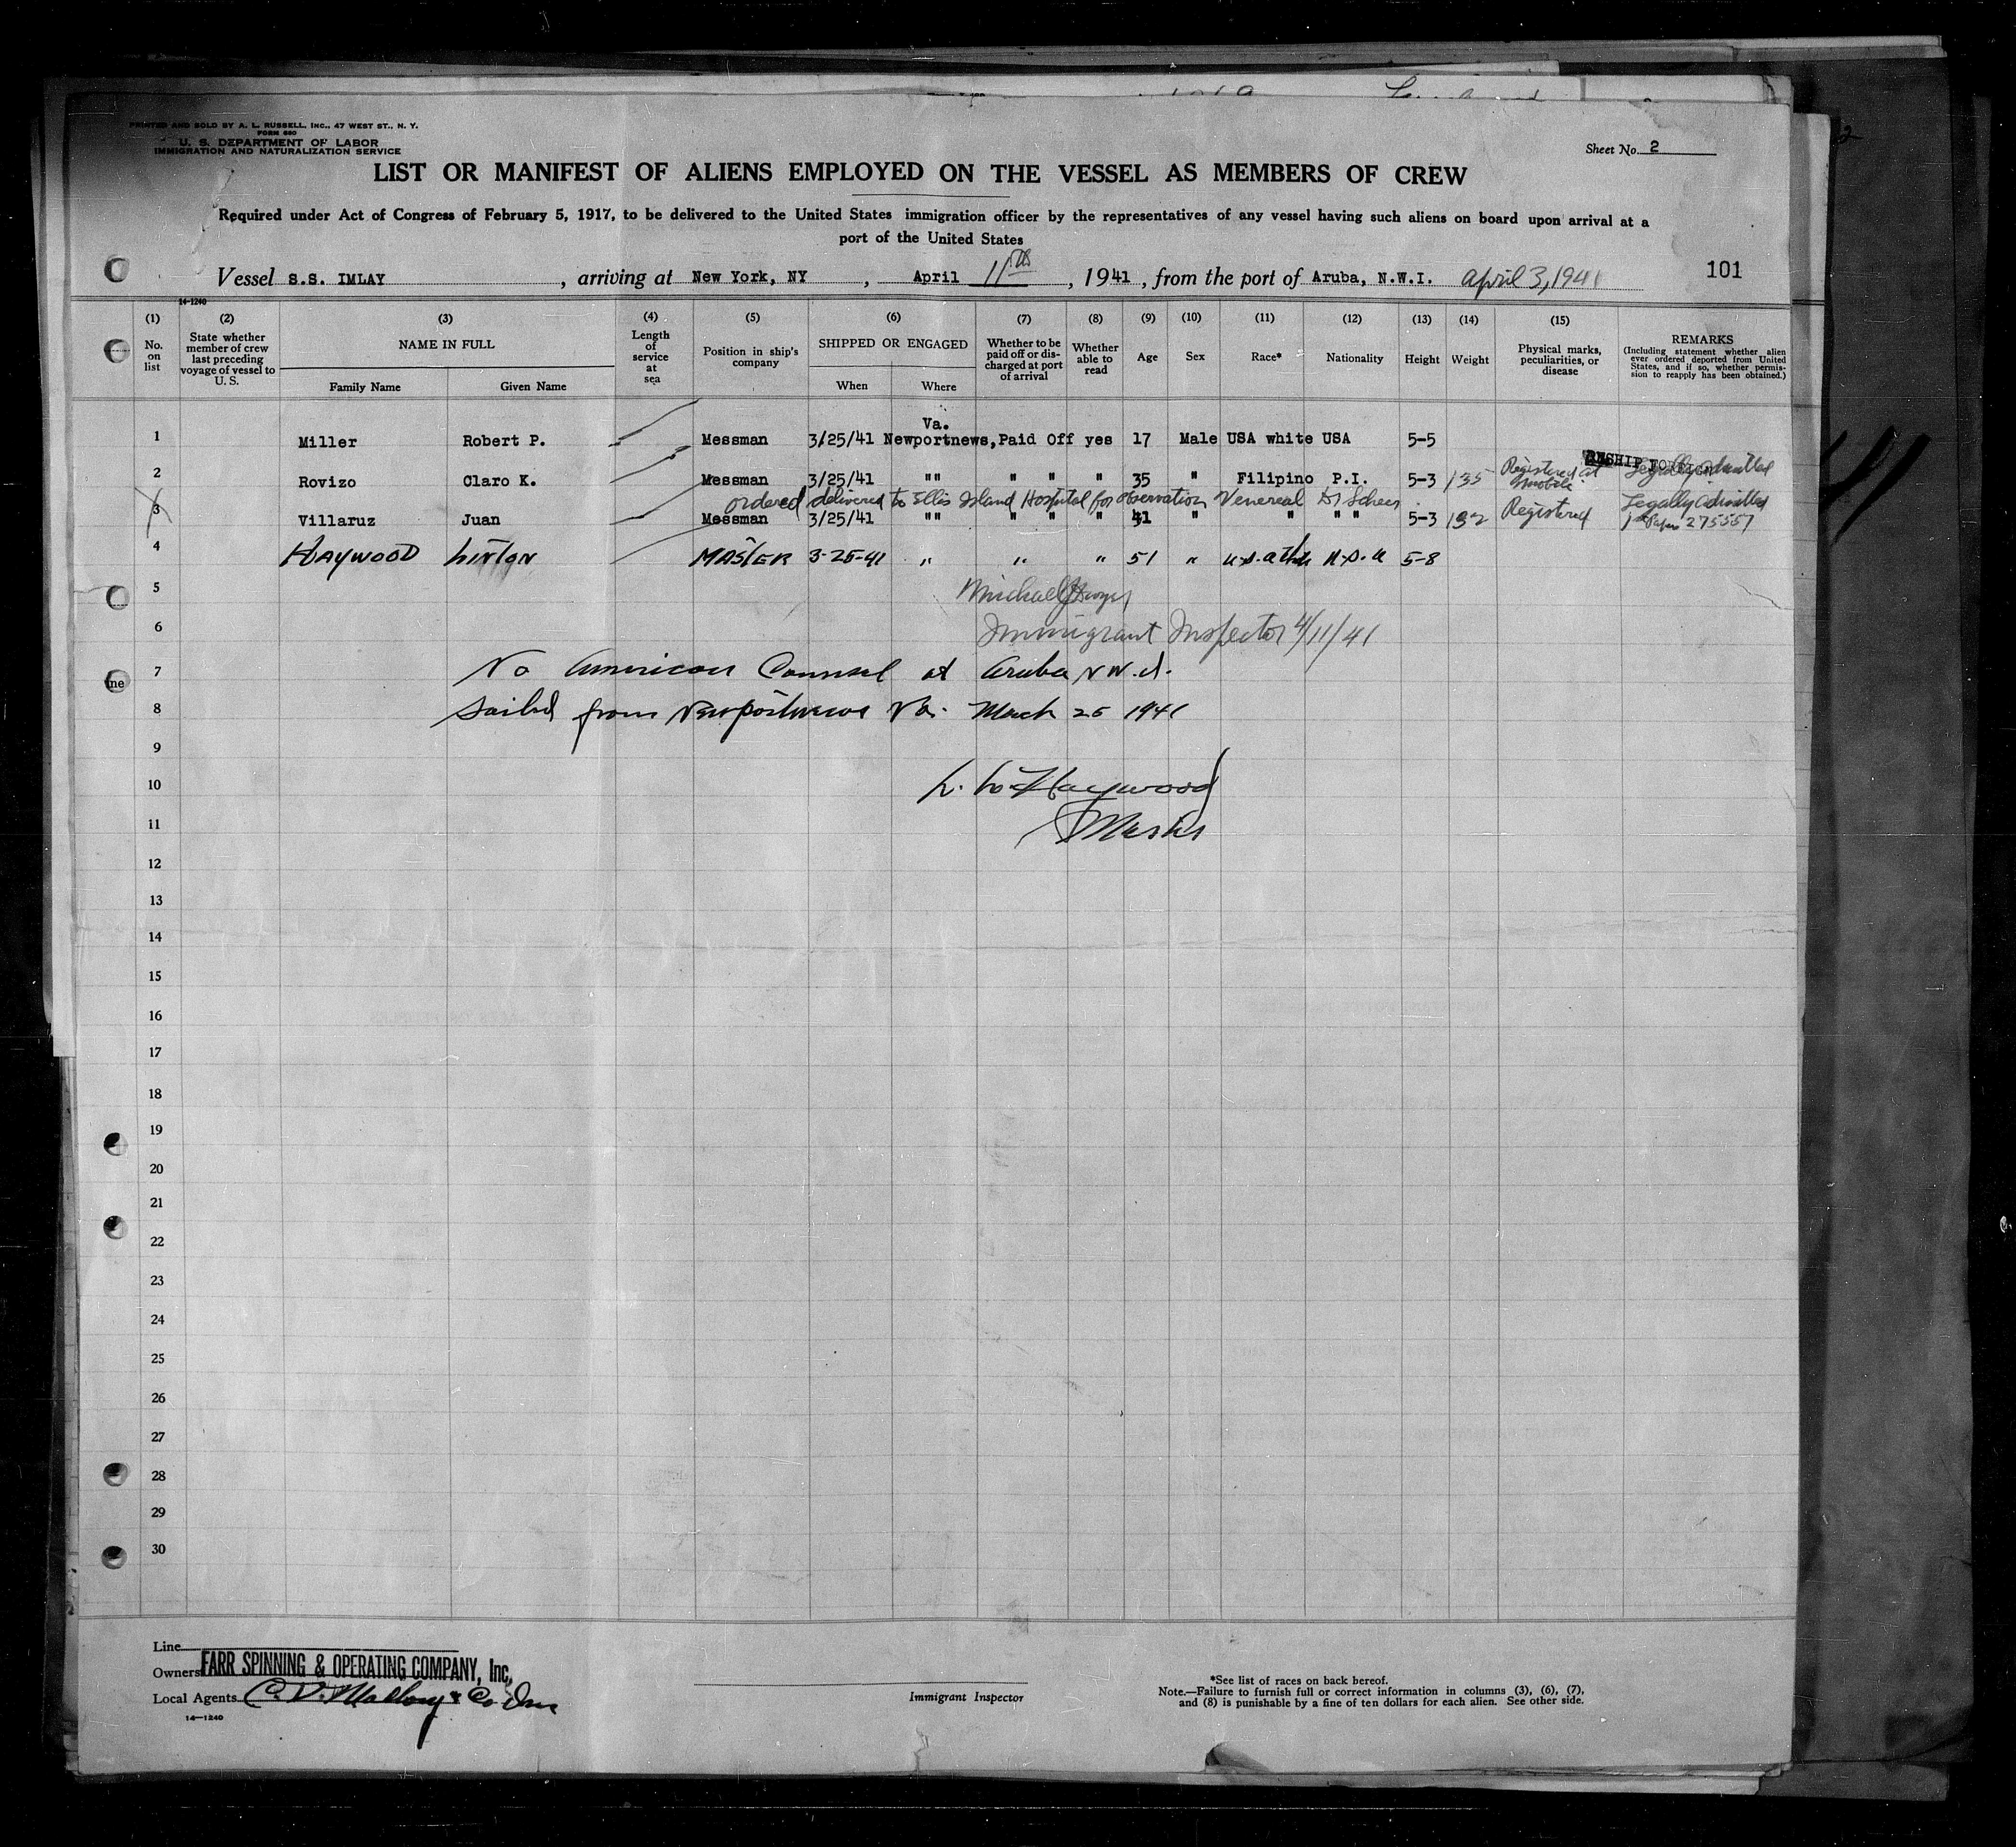 PRINTED AND SOLD BY A. L. RUSSELL, INC., 47 WEST ST., N. Y.
FORM 680
U. S. DEPARTMENT OF LABOR
IMMIGRATION AND NATURALIZATION SERVICE
Sheet No. 2
LIST OR MANIFEST OF ALIENS EMPLOYED ON THE VESSEL AS MEMBERS OF CREW
Required under Act of Congress of February 5, 1917, to be delivered to the United States immigration officer by the representatives of any vessel having such aliens on board upon arrival at a
port of the United States
Vessel S.S. IMLAY, arriving at New York, NY, April 11th, 1941, from the port of Aruba, N.W.I. April 3, 1941
101
14-1240
(1) No. on list
(2) State whether member of crew last preceding voyage of vessel to U. S.
(3) NAME IN FULL Family Name Given Name
(4) Length of service at sea
(5) Position in ship's company
(6) SHIPPED OR ENGAGED When Where
(7) Whether to be paid off or discharged at port of arrival
(8) Whether able to read
(9) Age
(10) Sex
(11) Race*
(12) Nationality
(13) Height
(14) Weight
(15) Physical marks, peculiarities, or disease
REMARKS (Including statement whether alien ever ordered deported from United States, and if so, whether permission to reapply has been obtained.)
Va.
1 Miller Robert P. Messman 3/25/41 Newportnews, Paid Off yes 17 Male USA white USA 5-5
2 Rovizo Claro K. Messman 3/25/41 "" " " " 35 " Filipino P.I. 5-3 135 Registered at Mobile Legally admitted
ordered delivered to Ellis Island Hospital for observation Venereal Dr
3 Villaruz Juan Messman 3/25/41 "" " " " 41 " " " " 5-3 132 Registered Legally admitted
1st Paper 275557
4 HAYWOOD LINTON MASTER 3-25-41 " " " 51 " U.S.A U.S.A 5-8
5 Michael
6 Immigrant Inspector 4/11/41
7 No American Counsel at Aruba N W.I.
8 Sailed from Newportnews Va. March 25 1941
9
10 L. W. Haywood
11 Master
12
13
14
15
16
17
18
19
20
21
22
23
24
25
26
27
28
29
30
Line
Owners FARR SPINNING & OPERATING COMPANY, Inc.
Local Agents C. D. Mallory & Co Inc
14-1240
Immigrant Inspector
*See list of races on back hereof.
Note.—Failure to furnish full or correct information in columns (3), (6), (7),
and (8) is punishable by a fine of ten dollars for each alien. See other side.